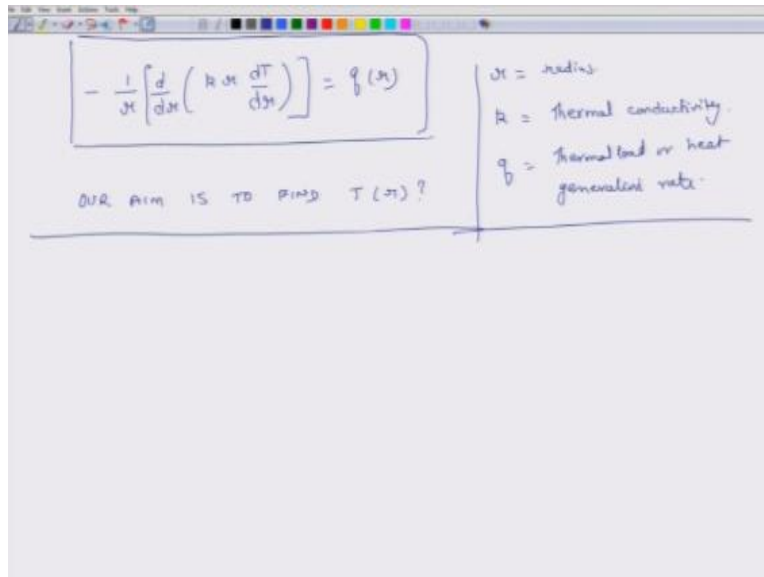 - 1/r [d/dr (k r dT/dr)] = q(r)
OUR AIM IS TO FIND T(r)?
r = radius
k = thermal conductivity.
q = thermal load or heat
generation rate.